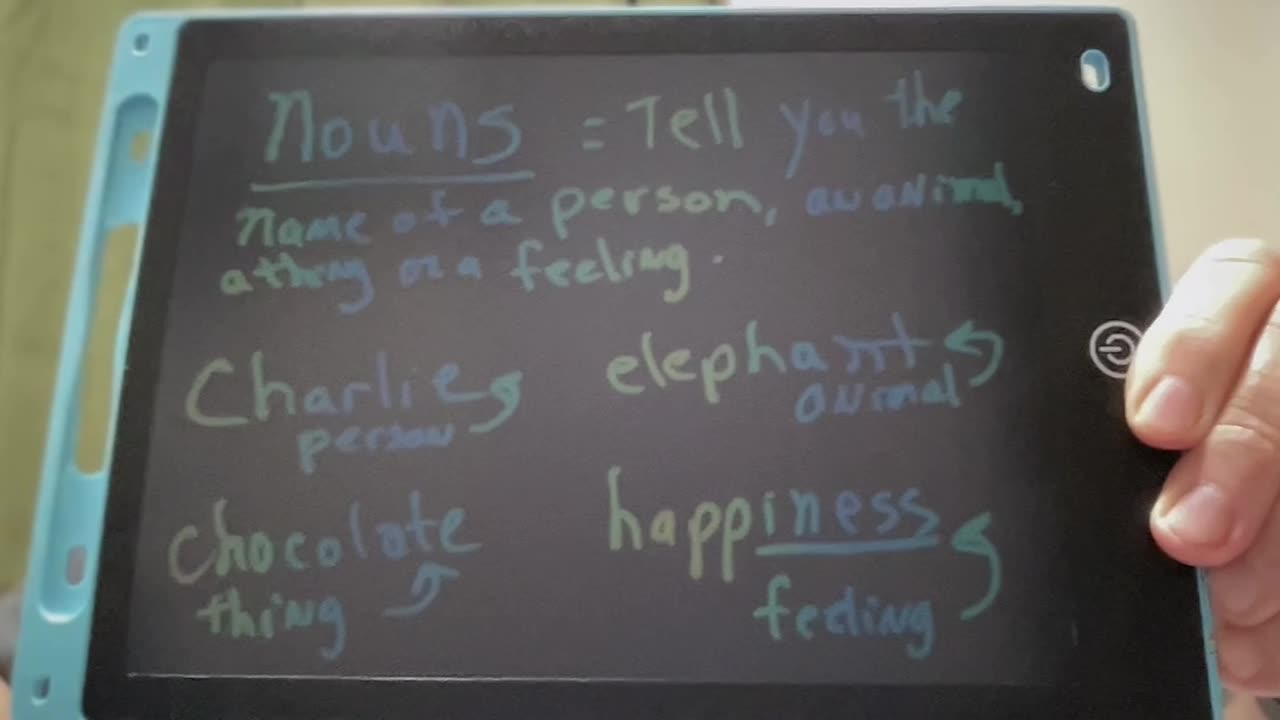 Nouns = Tell you the
name of a person, an animal,
a thing or a feeling.
Charlie
person
elephant
animal
chocolate
thing
happiness
feeling